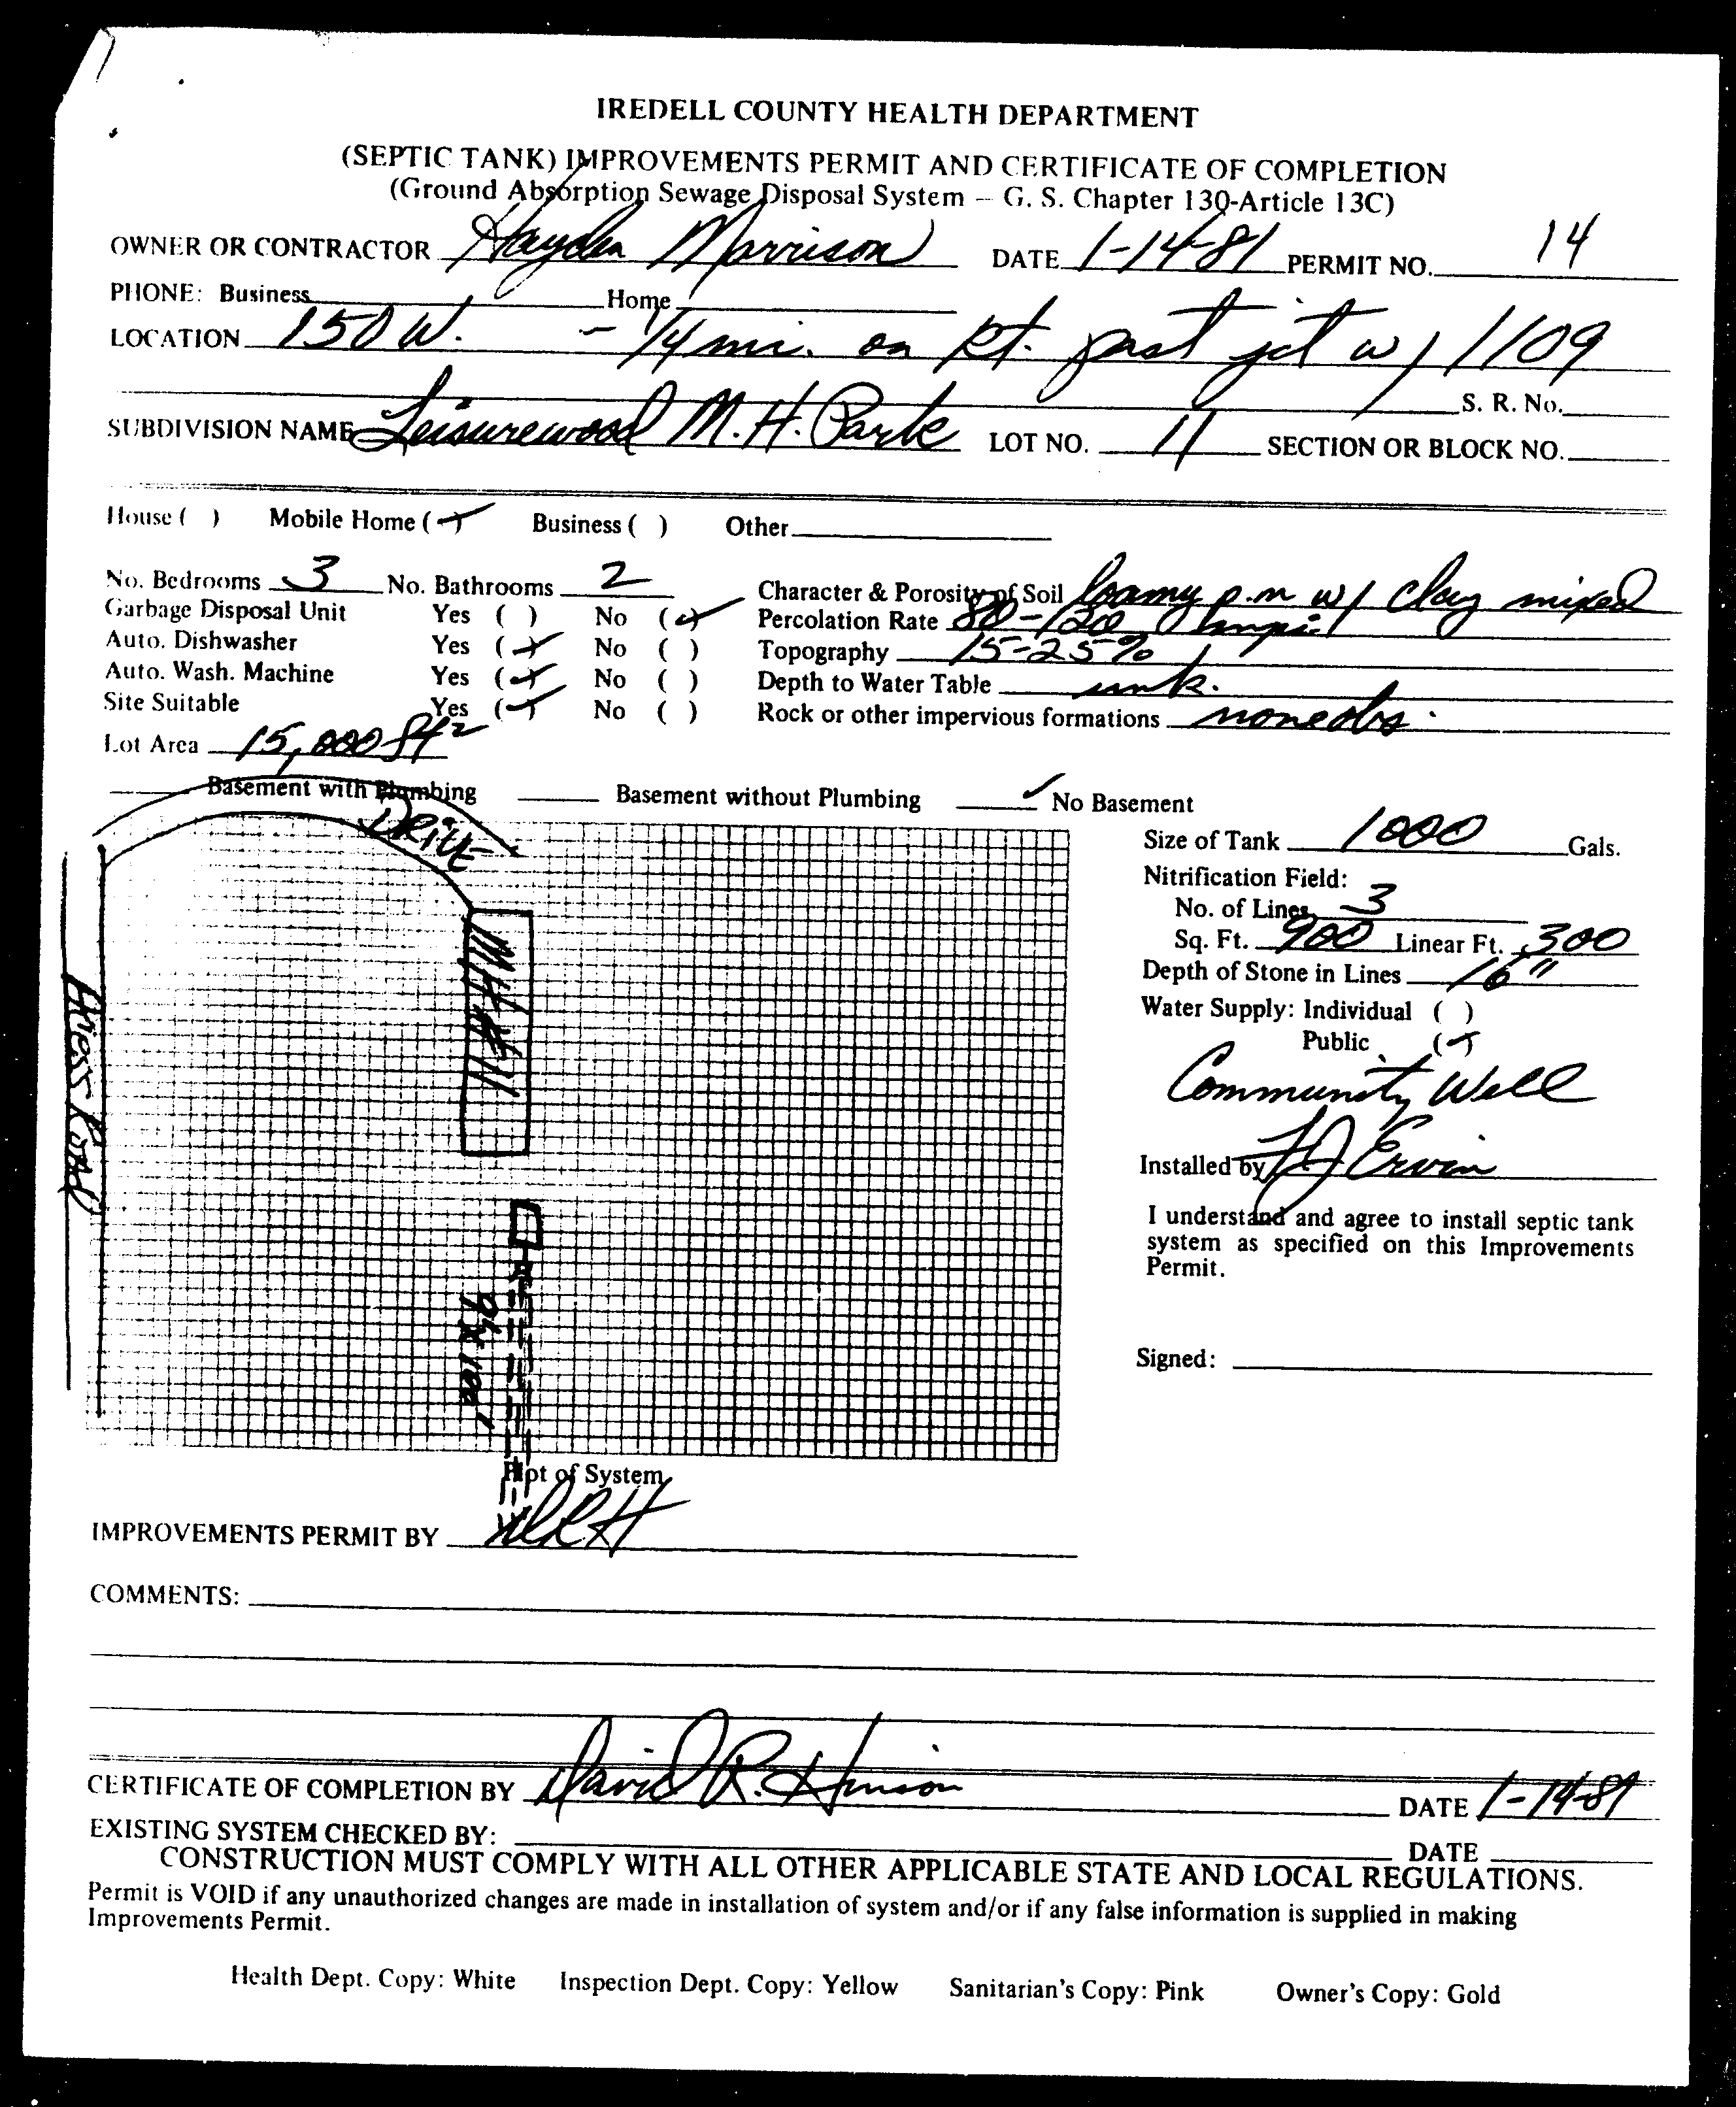 IREDELL COUNTY HEALTH DEPARTMENT
(SEPTIC TANK) IMPROVEMENTS PERMIT AND CERTIFICATE OF COMPLETION
(Ground Absorption Sewage Disposal System – G. S. Chapter 130-Article 13C)
OWNER OR CONTRACTOR Hayden Morrison DATE 1-14-81 PERMIT NO. 14
PHONE: Business Home
LOCATION 150 W. - 1/4 mi. on Rt. past jct w/ 1109
S. R. No.
SUBDIVISION NAME Leisurewood M.H. Park LOT NO. 11 SECTION OR BLOCK NO.
House ( ) Mobile Home (✓) Business ( ) Other
No. Bedrooms 3 No. Bathrooms 2 Character & Porosity of Soil loamy p.m w/ clay mixed
Garbage Disposal Unit Yes ( ) No (✓) Percolation Rate 80-120
Auto. Dishwasher Yes (✓) No ( ) Topography 15-25%
Auto. Wash. Machine Yes (✓) No ( ) Depth to Water Table unk.
Site Suitable Yes (✓) No ( ) Rock or other impervious formations none obs.
Lot Area 15,000 ft2
Basement with Plumbing Basement without Plumbing ✓ No Basement
DRIVE
MH #11
9' x 100'
Size of Tank 1000 Gals.
Nitrification Field:
No. of Lines 3
Sq. Ft. 900 Linear Ft. 300
Depth of Stone in Lines 16"
Water Supply: Individual ( )
Public (✓)
Community Well
Installed by Ervin
I understand and agree to install septic tank
system as specified on this Improvements
Permit.
Signed:
Plot of System
IMPROVEMENTS PERMIT BY DRH
COMMENTS:
CERTIFICATE OF COMPLETION BY David R. Hinson DATE 1-14-81
EXISTING SYSTEM CHECKED BY: DATE
CONSTRUCTION MUST COMPLY WITH ALL OTHER APPLICABLE STATE AND LOCAL REGULATIONS.
Permit is VOID if any unauthorized changes are made in installation of system and/or if any false information is supplied in making
Improvements Permit.
Health Dept. Copy: White Inspection Dept. Copy: Yellow Sanitarian's Copy: Pink Owner's Copy: Gold